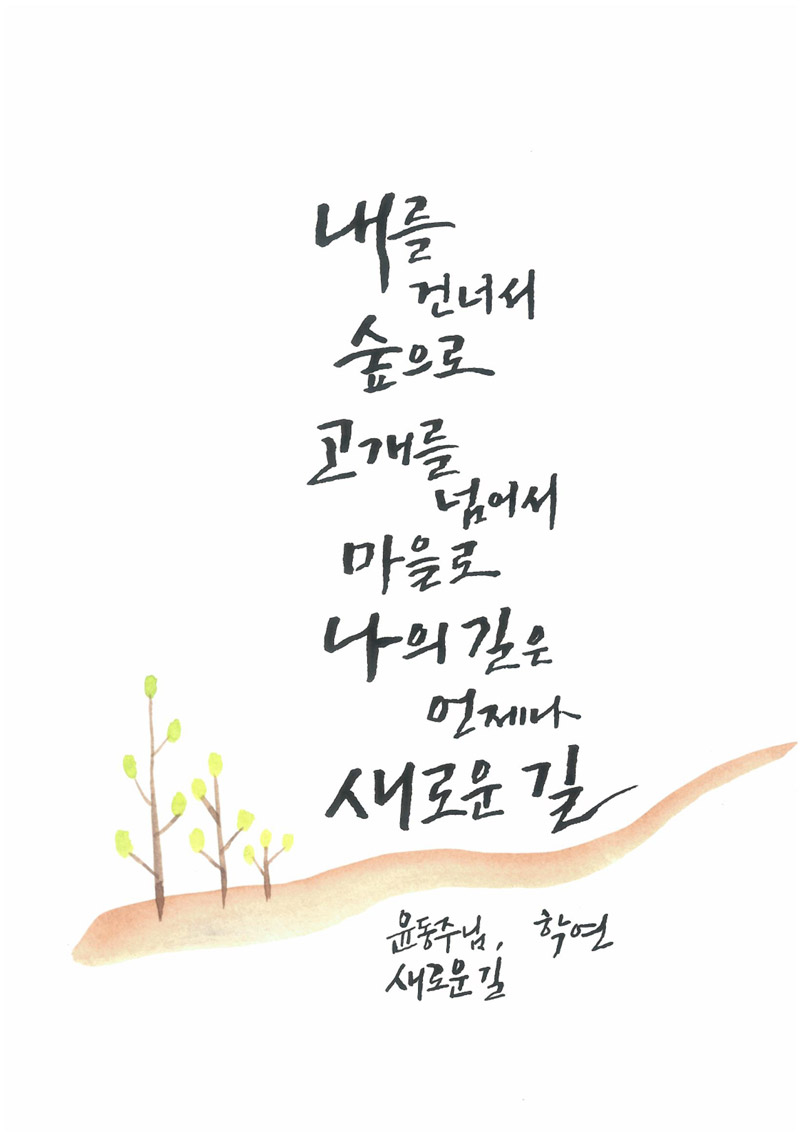 내를
건너서
숲으로
고개를
넘어서
마을로
나의 길은
언제나
새로운 길
윤동주님, 학연
새로운 길